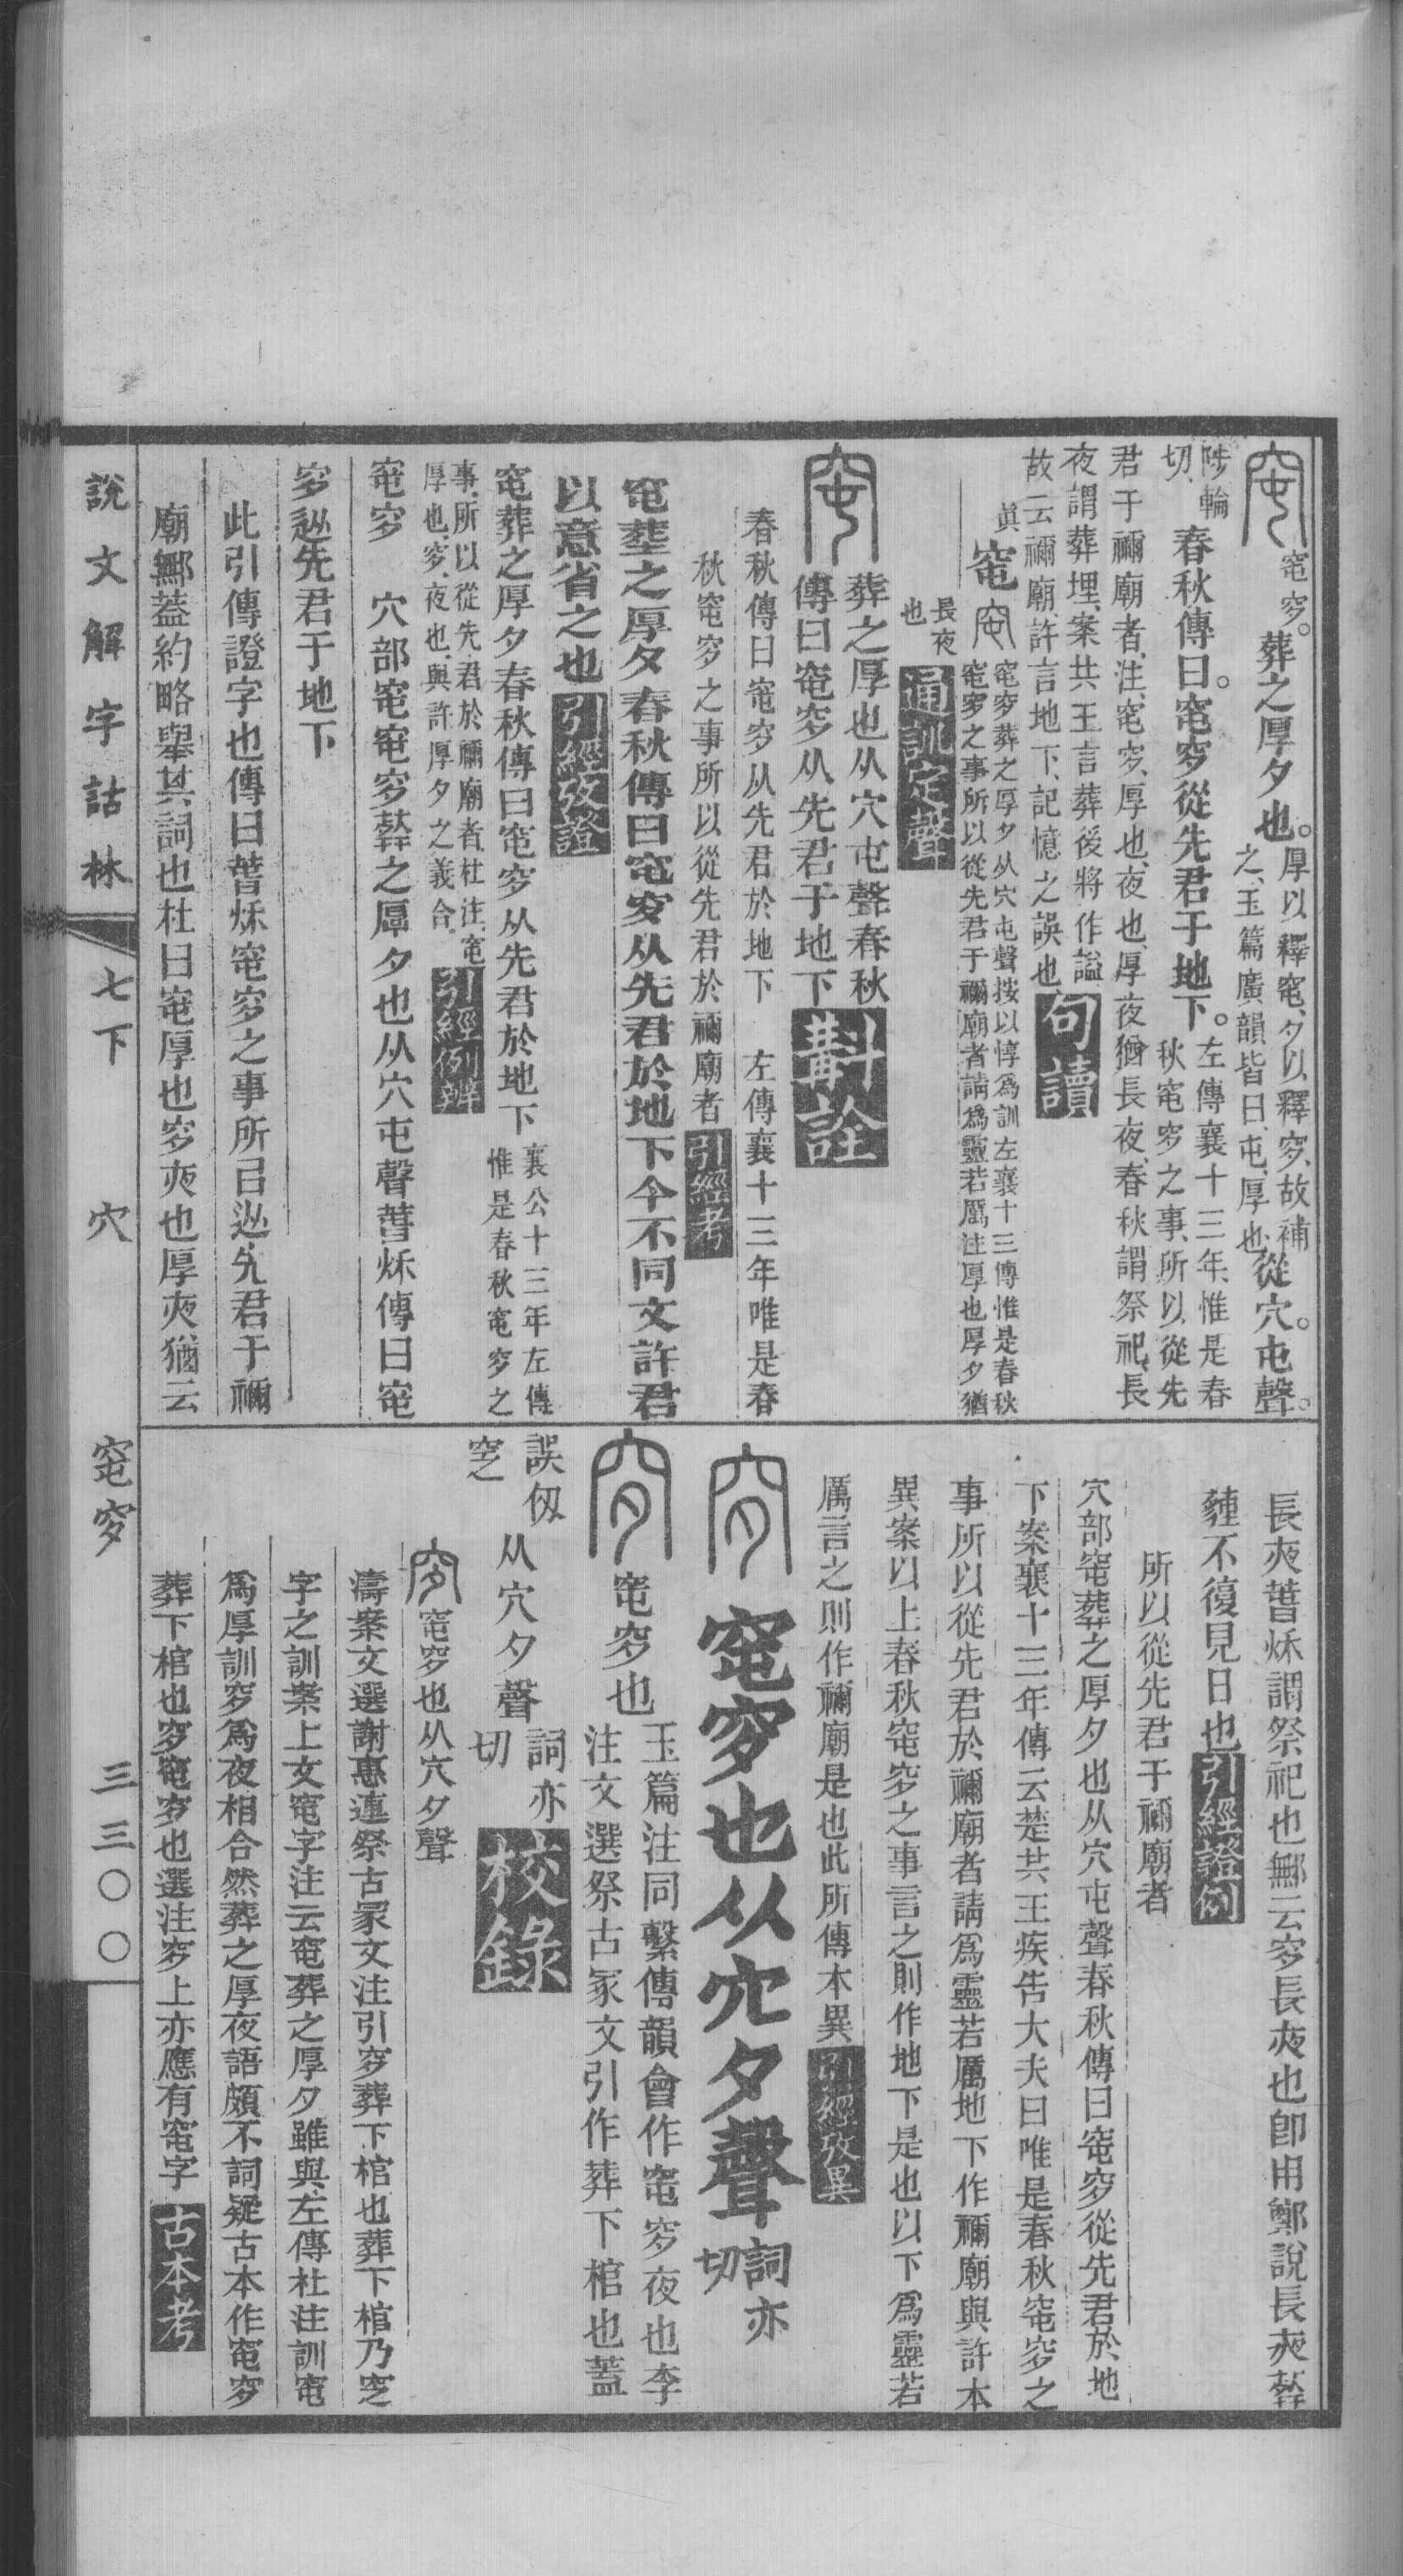 窀穸。葬之厚夕也。厚以釋窀、夕以釋穸、故補
之、玉篇廣韻皆曰、屯、厚也、從穴。屯聲。
陟輪
切、春秋傳曰。窀穸從先君于地下。左傳襄十三年、惟是春
秋窀穸之事、所以從先
君于禰廟者、注、窀穸、厚也、夜也、厚夜猶長夜、春秋謂祭祀、長
夜謂葬埋、案共王言葬後將作謚
故云禰廟、許言地下、記憶之誤也句讀
眞
窀 窀穸葬之厚夕从穴屯聲按以惇爲訓左襄十三傳惟是春秋
窀穸之事所以從先君于禰廟者請爲靈若厲注厚也厚夕猶
長夜
也 通訓定聲
葬之厚也从穴屯聲春秋
傳曰窀穸从先君于地下斠詮
春秋傳曰窀穸从先君於地下 左傳襄十三年唯是春
秋窀穸之事所以從先君於禰廟者引經考
窀葬之厚夕春秋傳曰窀穸从先君於地下今不同文許君
以意省之也引經攷證
窀葬之厚夕春秋傳曰窀穸从先君於地下襄公十三年左傳
惟是春秋窀穸之
事、所以從先君於禰廟者、杜注、窀
厚也、穸、夜也、與許厚夕之義合、引經例辨
窀穸 穴部窀窀穸葬之厚夕也从穴屯聲萅秌傳曰窀
穸䢐先君于地下
此引傳證字也傳曰萅秌窀穸之事所㠯䢐先君于禰
廟鄦葢約略舉其詞也杜曰窀厚也穸夾也厚夾猶云
說文解字詁林 七下 穴 窀穸 三三〇〇
長夾萅秌謂祭祀也鄦云穸長夾也卽用鄭說長夾葬
薶不復見日也引經證例
所以從先君于禰廟者
穴部窀葬之厚夕也从穴屯聲春秋傳曰窀穸從先君於地
下案襄十三年傳云楚共王疾告大夫曰唯是春秋窀穸之
事所以從先君於禰廟者請爲靈若厲地下作禰廟與許本
異案以上春秋窀穸之事言之則作地下是也以下爲靈若
厲言之則作禰廟是也此所傳本異引經攷異
窀穸也从穴夕聲詞亦
切
窀穸也玉篇注同繫傳韻會作窀穸夜也李
注文選祭古冢文引作葬下棺也葢
誤仞
窆之 从穴夕聲詞亦
切 校錄
窀穸也从穴夕聲
濤案文選謝惠連祭古冢文注引穸葬下棺也葬下棺乃窆
字之訓案上文窀字注云窀葬之厚夕雖與左傳杜注訓窀
爲厚訓穸爲夜相合然葬之厚夜語頗不詞疑古本作窀穸
葬下棺也穸窀穸也選注穸上亦應有窀字古本考